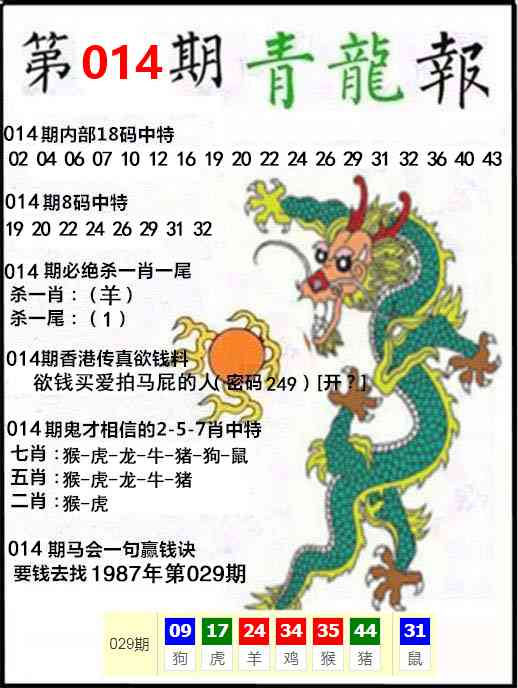 第014期青龍報
014期内部18码中特
02 04 06 07 10 12 16 19 20 22 24 26 29 31 32 36 40 43
014期8码中特
19 20 22 24 26 29 31 32
014期必绝杀一肖一尾
杀一肖：（羊）
杀一尾：（1）
014期香港传真欲钱料
欲钱买爱拍马屁的人（密码249）[开？]
014期鬼才相信的2-5-7肖中特
七肖：猴-虎-龙-牛-猪-狗-鼠
五肖：猴-虎-龙-牛-猪
二肖：猴-虎
014期马会一句赢钱诀
要钱去找1987年第029期
029期 09 17 24 34 35 44 31
狗 虎 羊 鸡 猴 猪 鼠